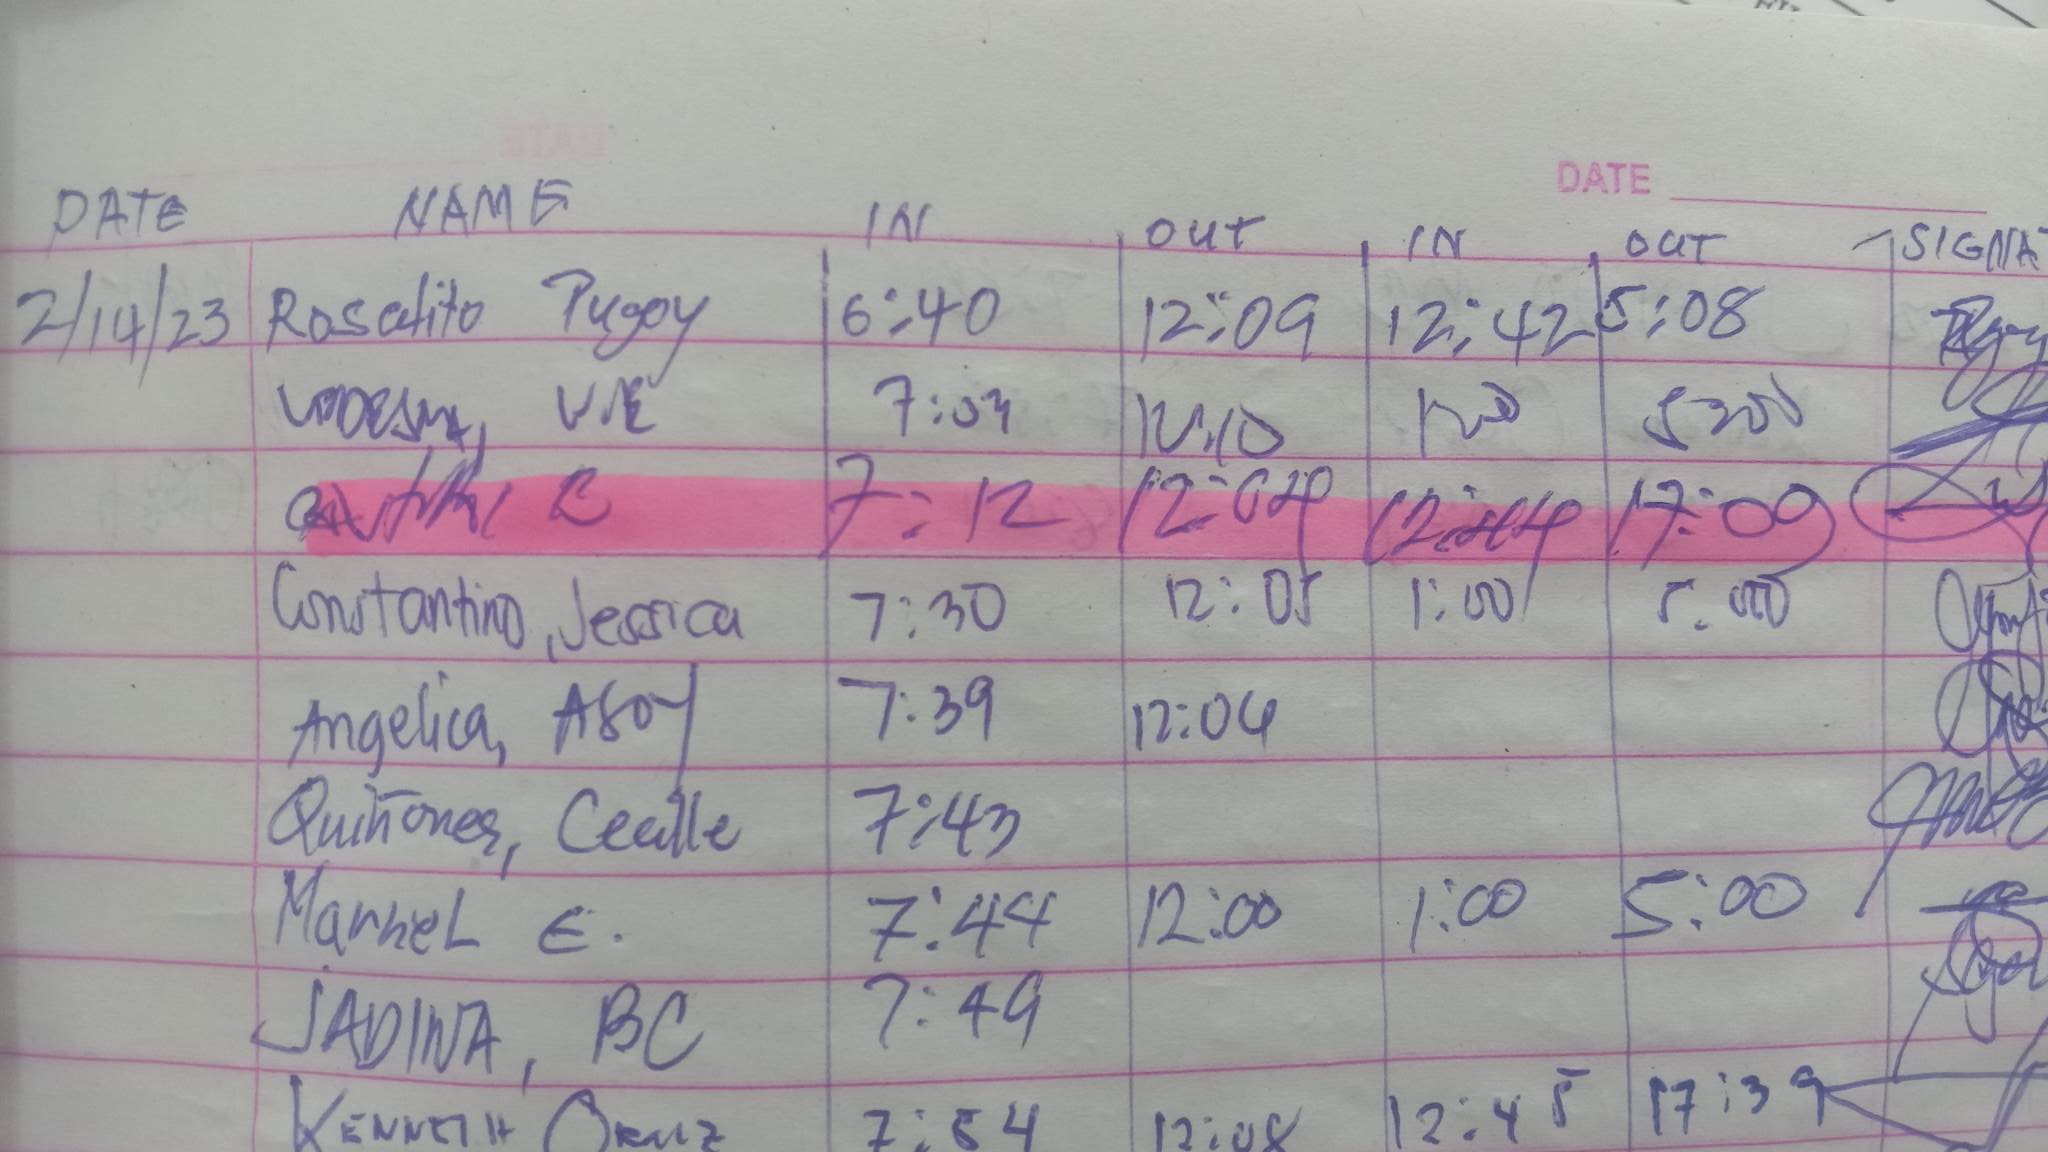 DATE
DATE NAME IN OUT IN OUT SIGNAT
2/14/23 Rosalito Pugoy 6:40 12:09 12:42 5:08
7:04 12:10 5:00
7:12 12:04 12:44 17:09
Constantino, Jessica 7:30 12:05 1:00 5:00
Angelica, Asoy 7:39 12:04
Quiñones, Cecille 7:43
Marnel E. 7:44 12:00 1:00 5:00
JADINA, BC 7:49
KENNETH 7:54 12:08 12:45 17:39